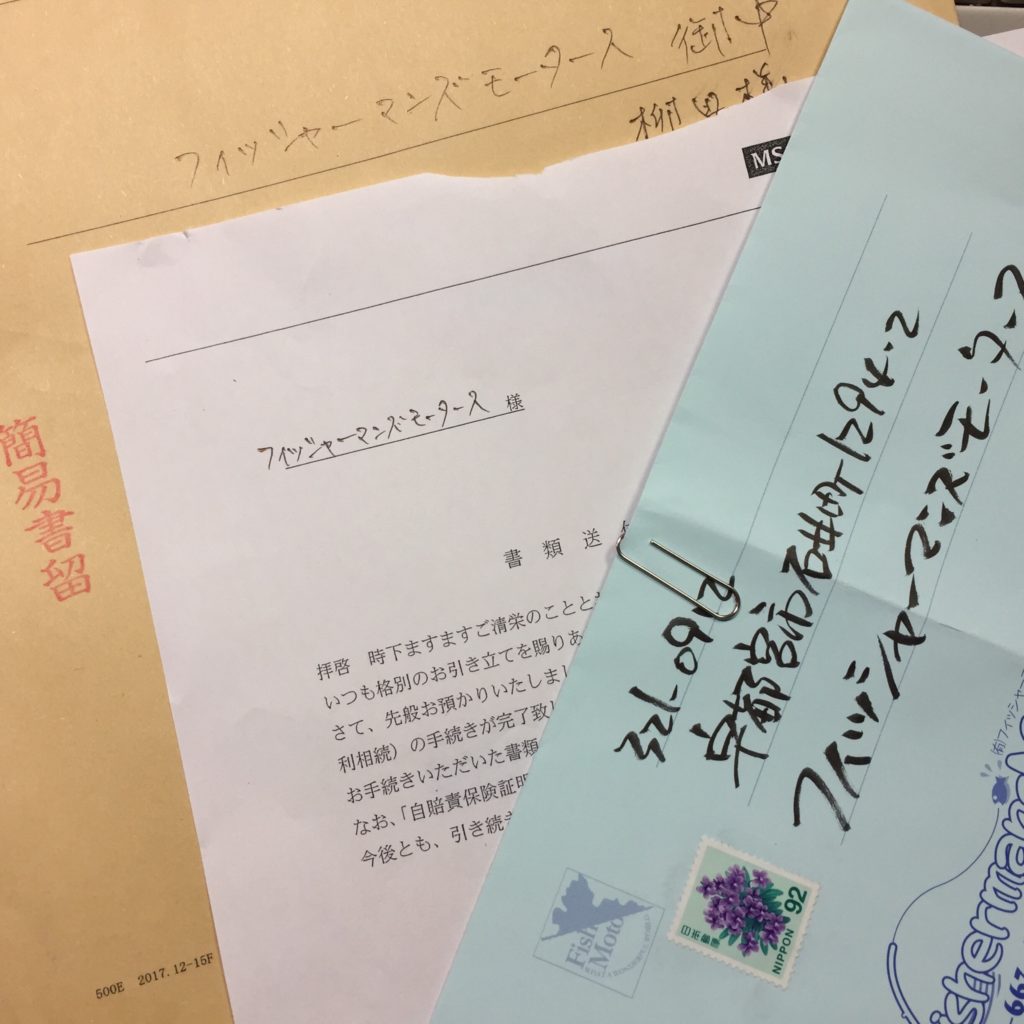 フィッシャーマンズモータース 御中
柳田様
MS
フィッシャーマンズモータース 様
書類送
拝啓 時下ますますご清栄のことと
いつも格別のお引き立てを賜りあ
さて、先般お預かりいたしまし
利相続)の手続きが完了致し
お手続きいただいた書類
なお、「自賠責保険証明
今後とも、引き続き
簡易書留
500E 2017.12-15F
321-0912
宇都宮市石井町1294-2
フィッシャーマンズモータース
日本郵便
92
NIPPON
Fish
Moto
WHAT A WONDERFUL WORLD
(有)フィッシャーマ
isherman